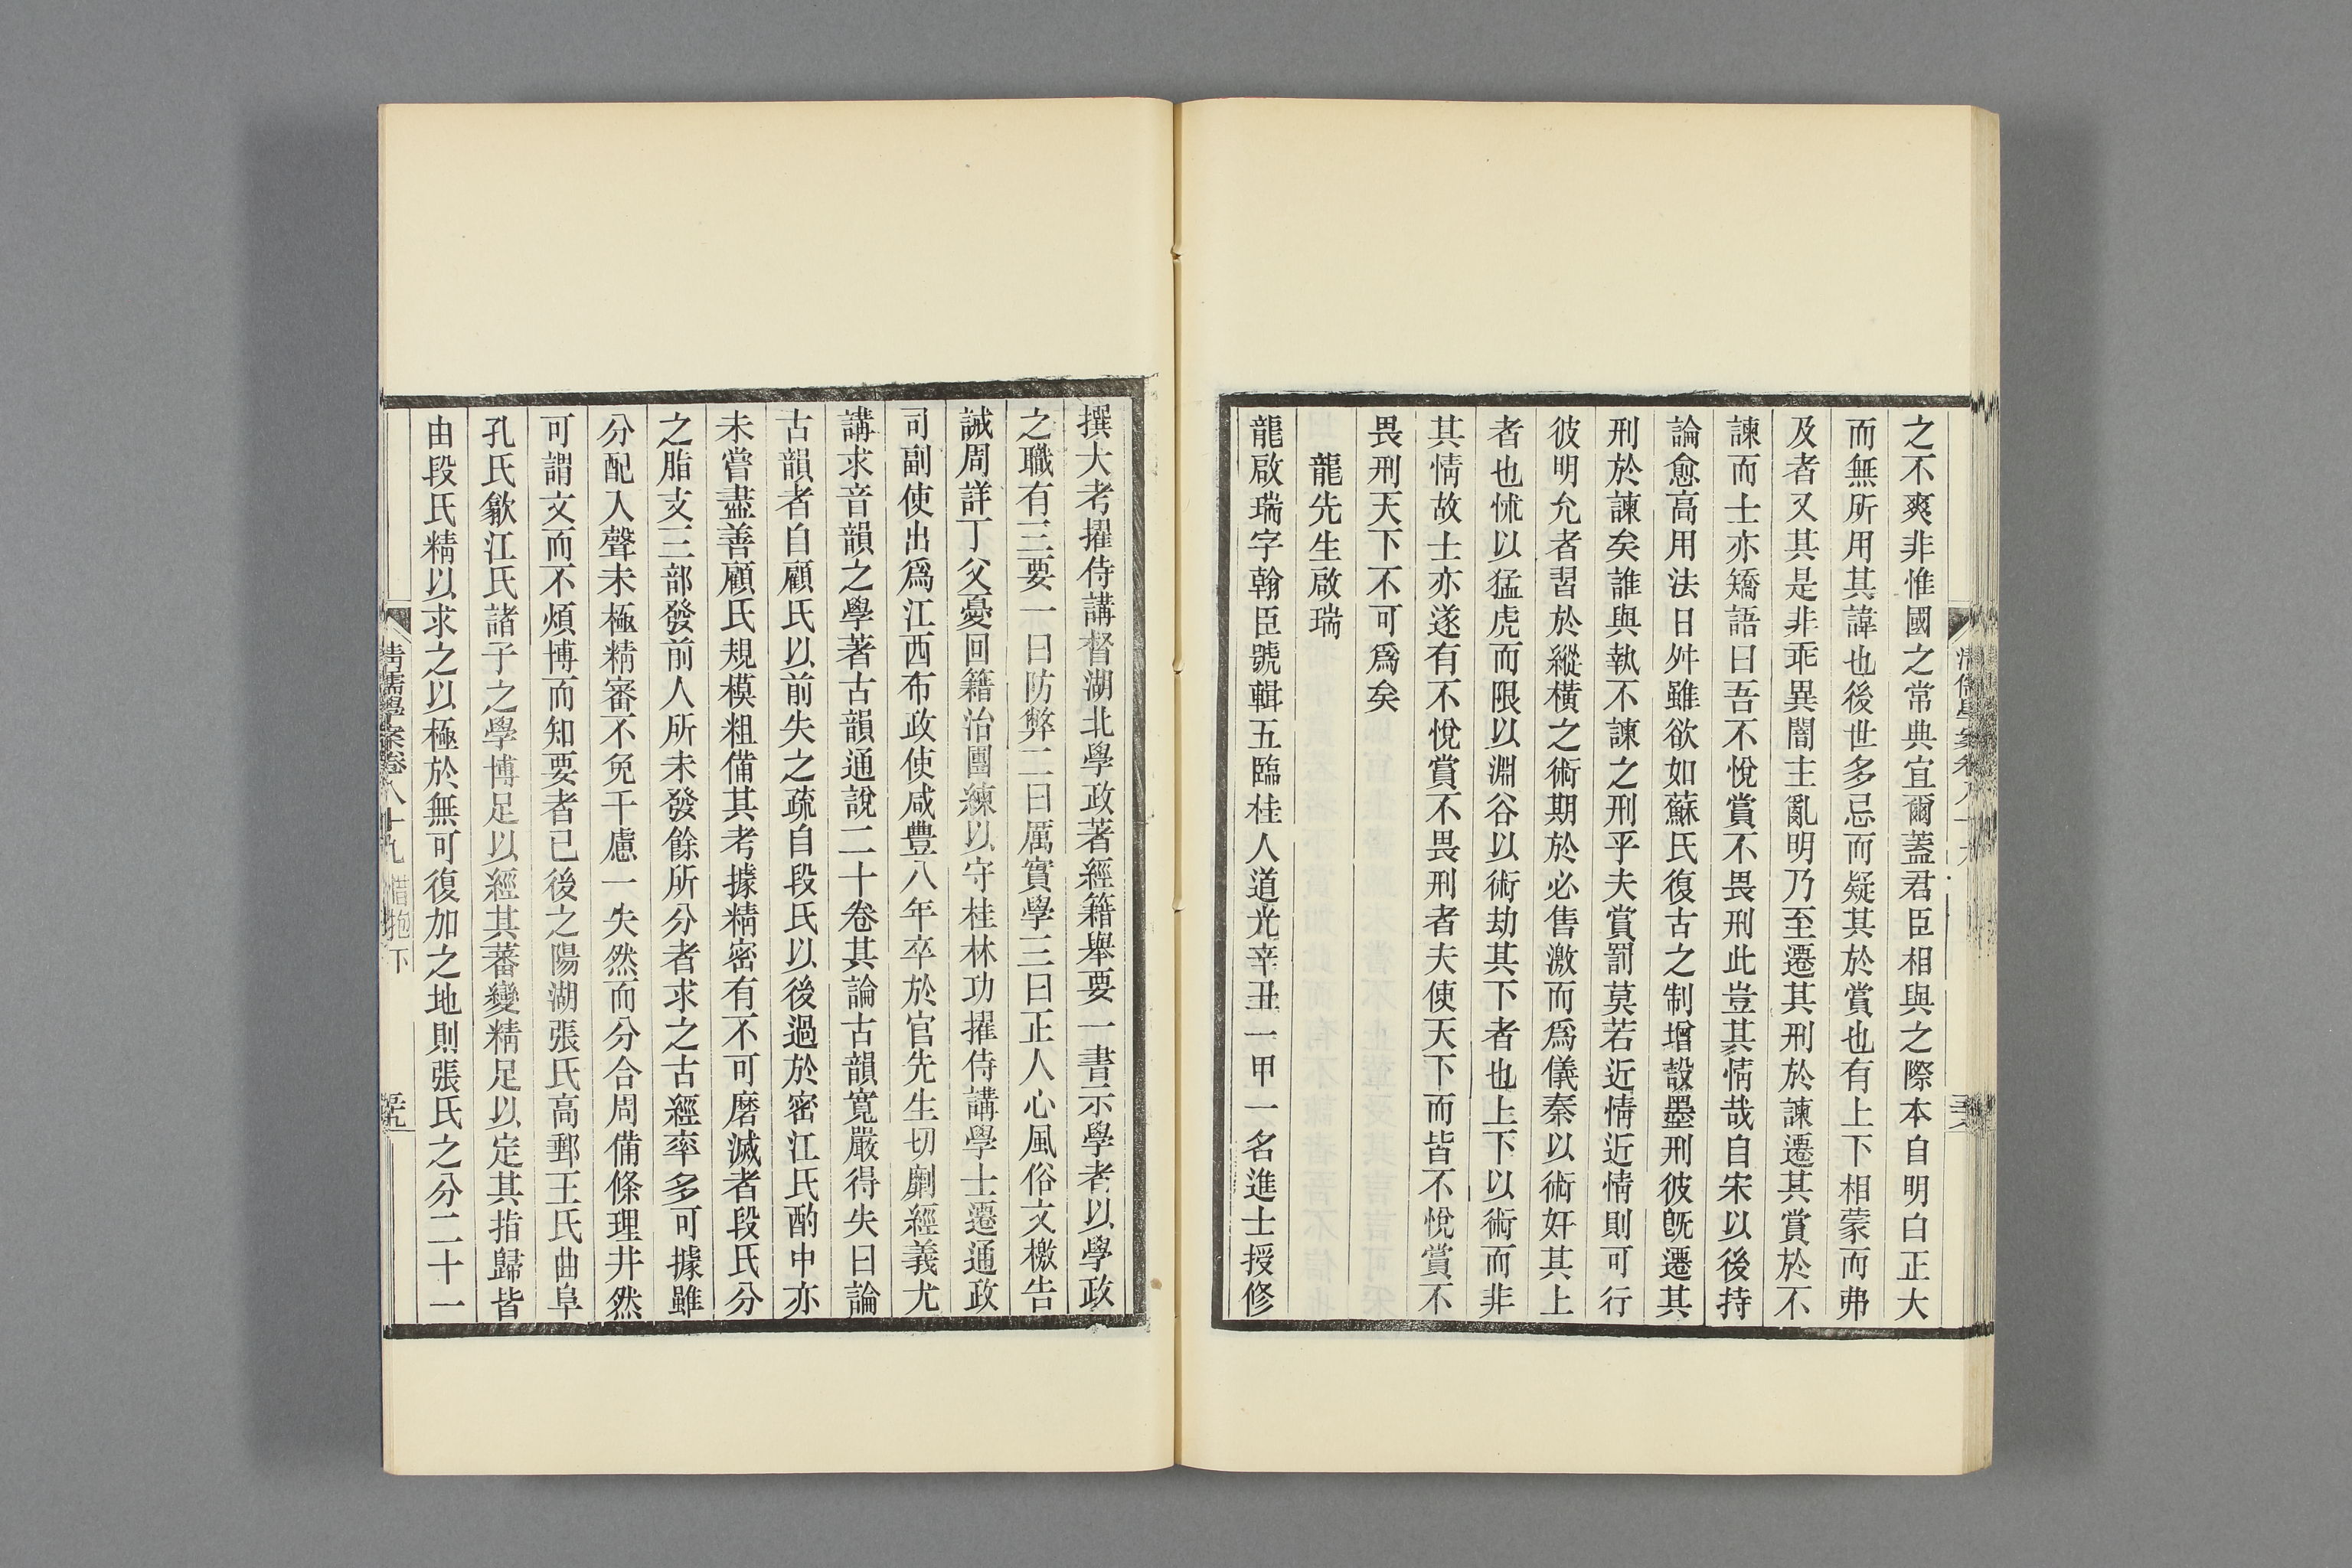 之不爽非惟國之常典宜爾蓋君臣相與之際本自明白正大
而無所用其諱也後世多忌而疑其於賞也有上下相蒙而弗
及者又其是非乖異闇主亂明乃至遷其刑於諫遷其賞於不
諫而士亦矯語曰吾不悅賞不畏刑此豈其情哉自宋以後持
論愈高用法日舛雖欲如蘇氏復古之制增設墨刑彼旣遷其
刑於諫矣誰與執不諫之刑乎夫賞罰莫若近情近情則可行
彼明允者習於縱橫之術期於必售激而爲儀秦以術奸其上
者也怵以猛虎而限以淵谷以術劫其下者也上下以術而非
其情故士亦遂有不悅賞不畏刑者夫使天下而皆不悅賞不
畏刑天下不可爲矣
龍先生啟瑞
龍啟瑞字翰臣號輯五臨桂人道光辛丑一甲一名進士授修
撰大考擢侍講督湖北學政著經籍舉要一書示學者以學政
之職有三要一曰防弊二曰厲實學三曰正人心風俗文檄告
誡周詳丁父憂回籍治團練以守桂林功擢侍講學士遷通政
司副使出爲江西布政使咸豐八年卒於官先生切劘經義尤
講求音韻之學著古韻通說二十卷其論古韻寬嚴得失曰論
古韻者自顧氏以前失之疏自段氏以後過於密江氏酌中亦
未嘗盡善顧氏規模粗備其考據精密有不可磨滅者段氏分
之脂支三部發前人所未發餘所分者求之古經率多可據雖
分配入聲未極精審不免千慮一失然而分合周備條理井然
可謂文而不煩博而知要者已後之陽湖張氏高郵王氏曲阜
孔氏歙江氏諸子之學博足以經其蕃變精足以定其指歸皆
由段氏精以求之以極於無可復加之地則張氏之分二十一
清儒學案卷八十九 惜抱下